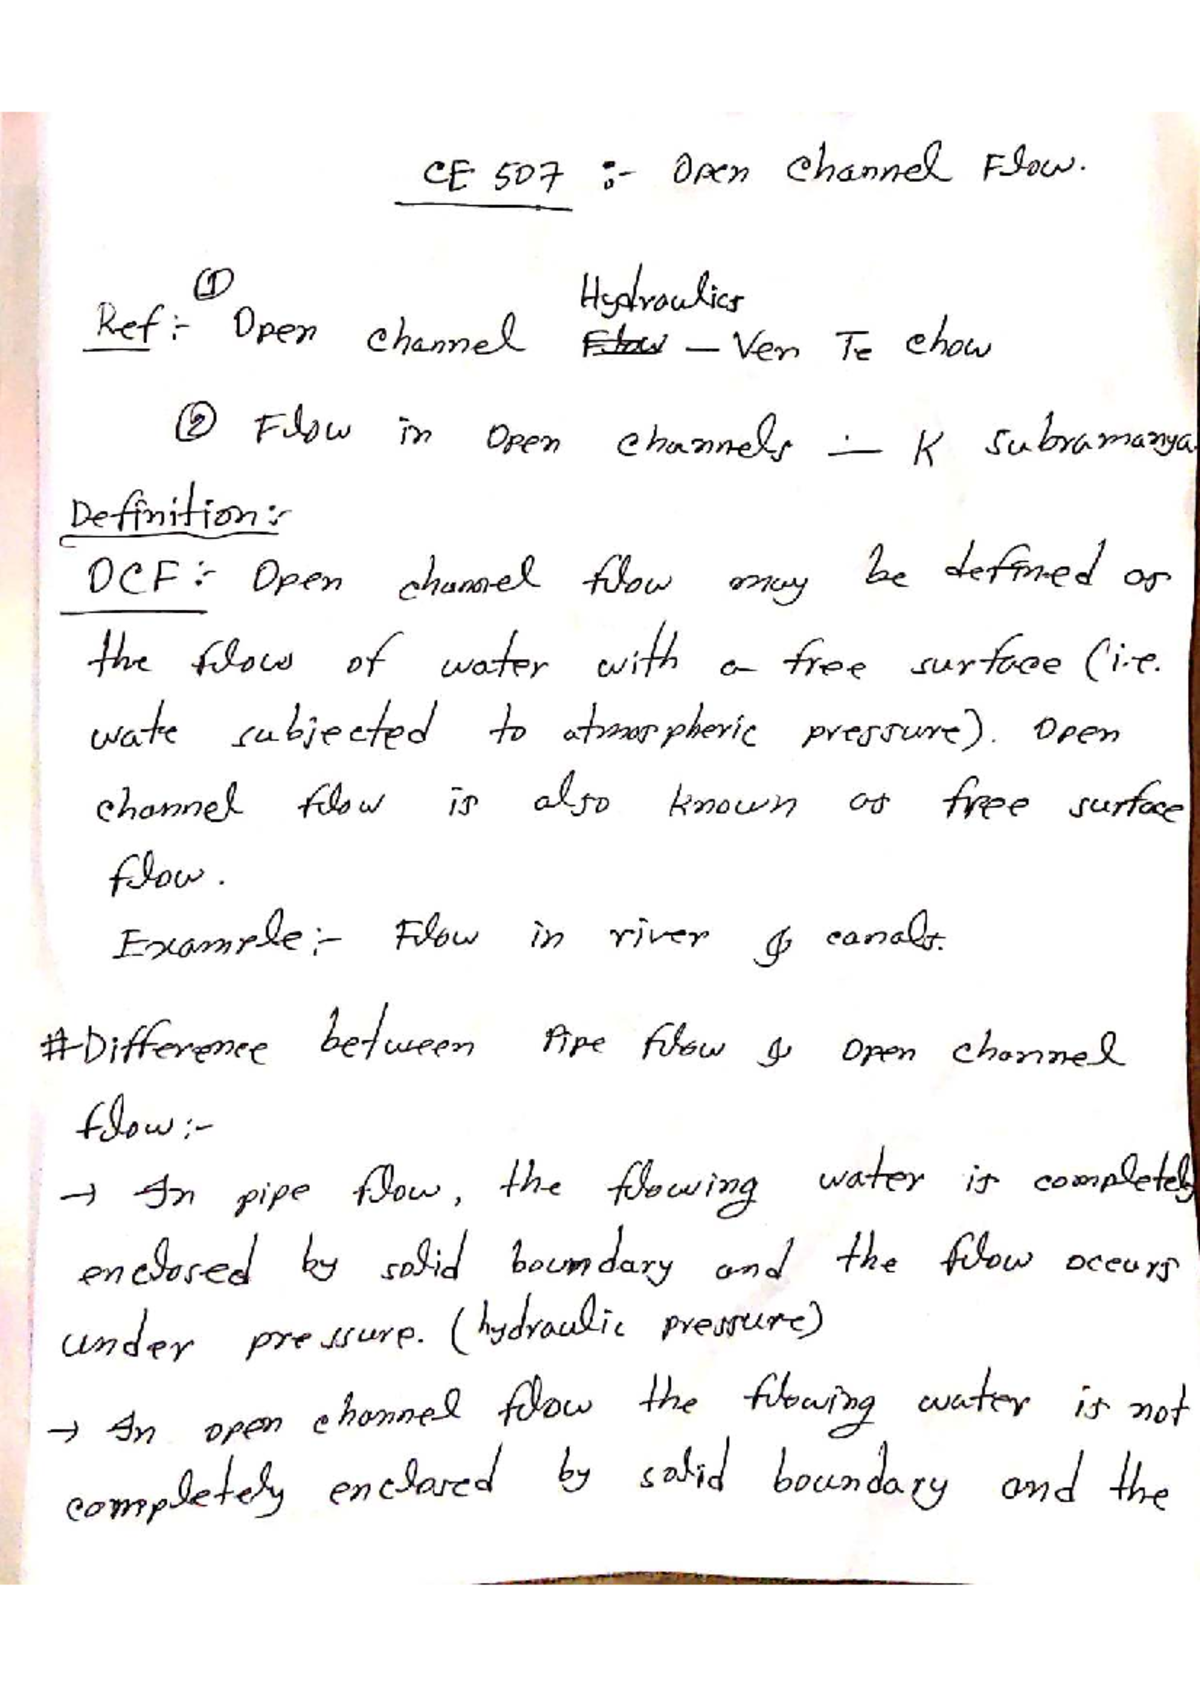 CE 507 :- Open channel Flow.
Ref:- ① Open channel Hydraulics ~~Flow~~ - Ven Te chow
② Flow in open channels :- K Subramanya
Definition:-
OCF :- Open channel flow may be defined as
the flow of water with a free surface (i.e.
wate subjected to atmospheric pressure). Open
channel flow is also known as free surface
flow.
Example:- Flow in river & canals.
#Difference between Pipe flow & open channel
flow:-
→ In pipe flow, the flowing water is completely
enclosed by solid boundary and the flow occurs
under pressure. (hydraulic pressure)
→ In open channel flow the flowing water is not
completely enclosed by solid boundary and the